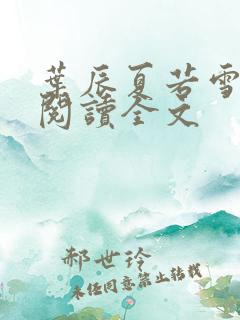 葉辰夏若雪
閱讀全文
郝世玲
未經同意禁止转載